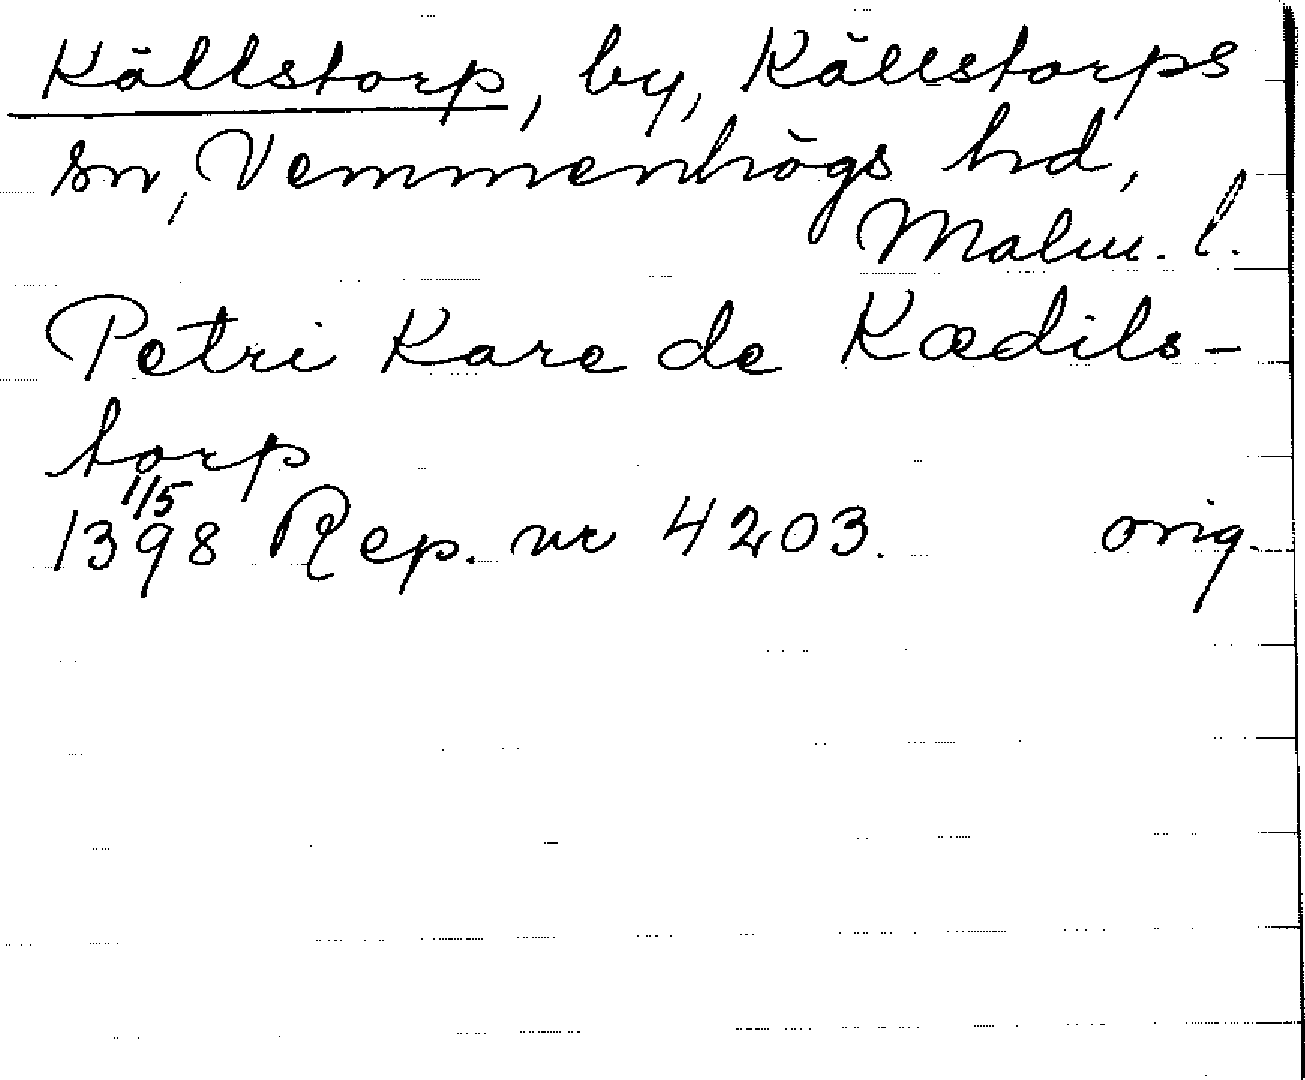 Källstorp, by, Källstorps
sn, Vemmenhögs hd,
Malm. l.
Petri Kare de Kædils-
torp
1/5
1398 Rep. nr 4203. orig.